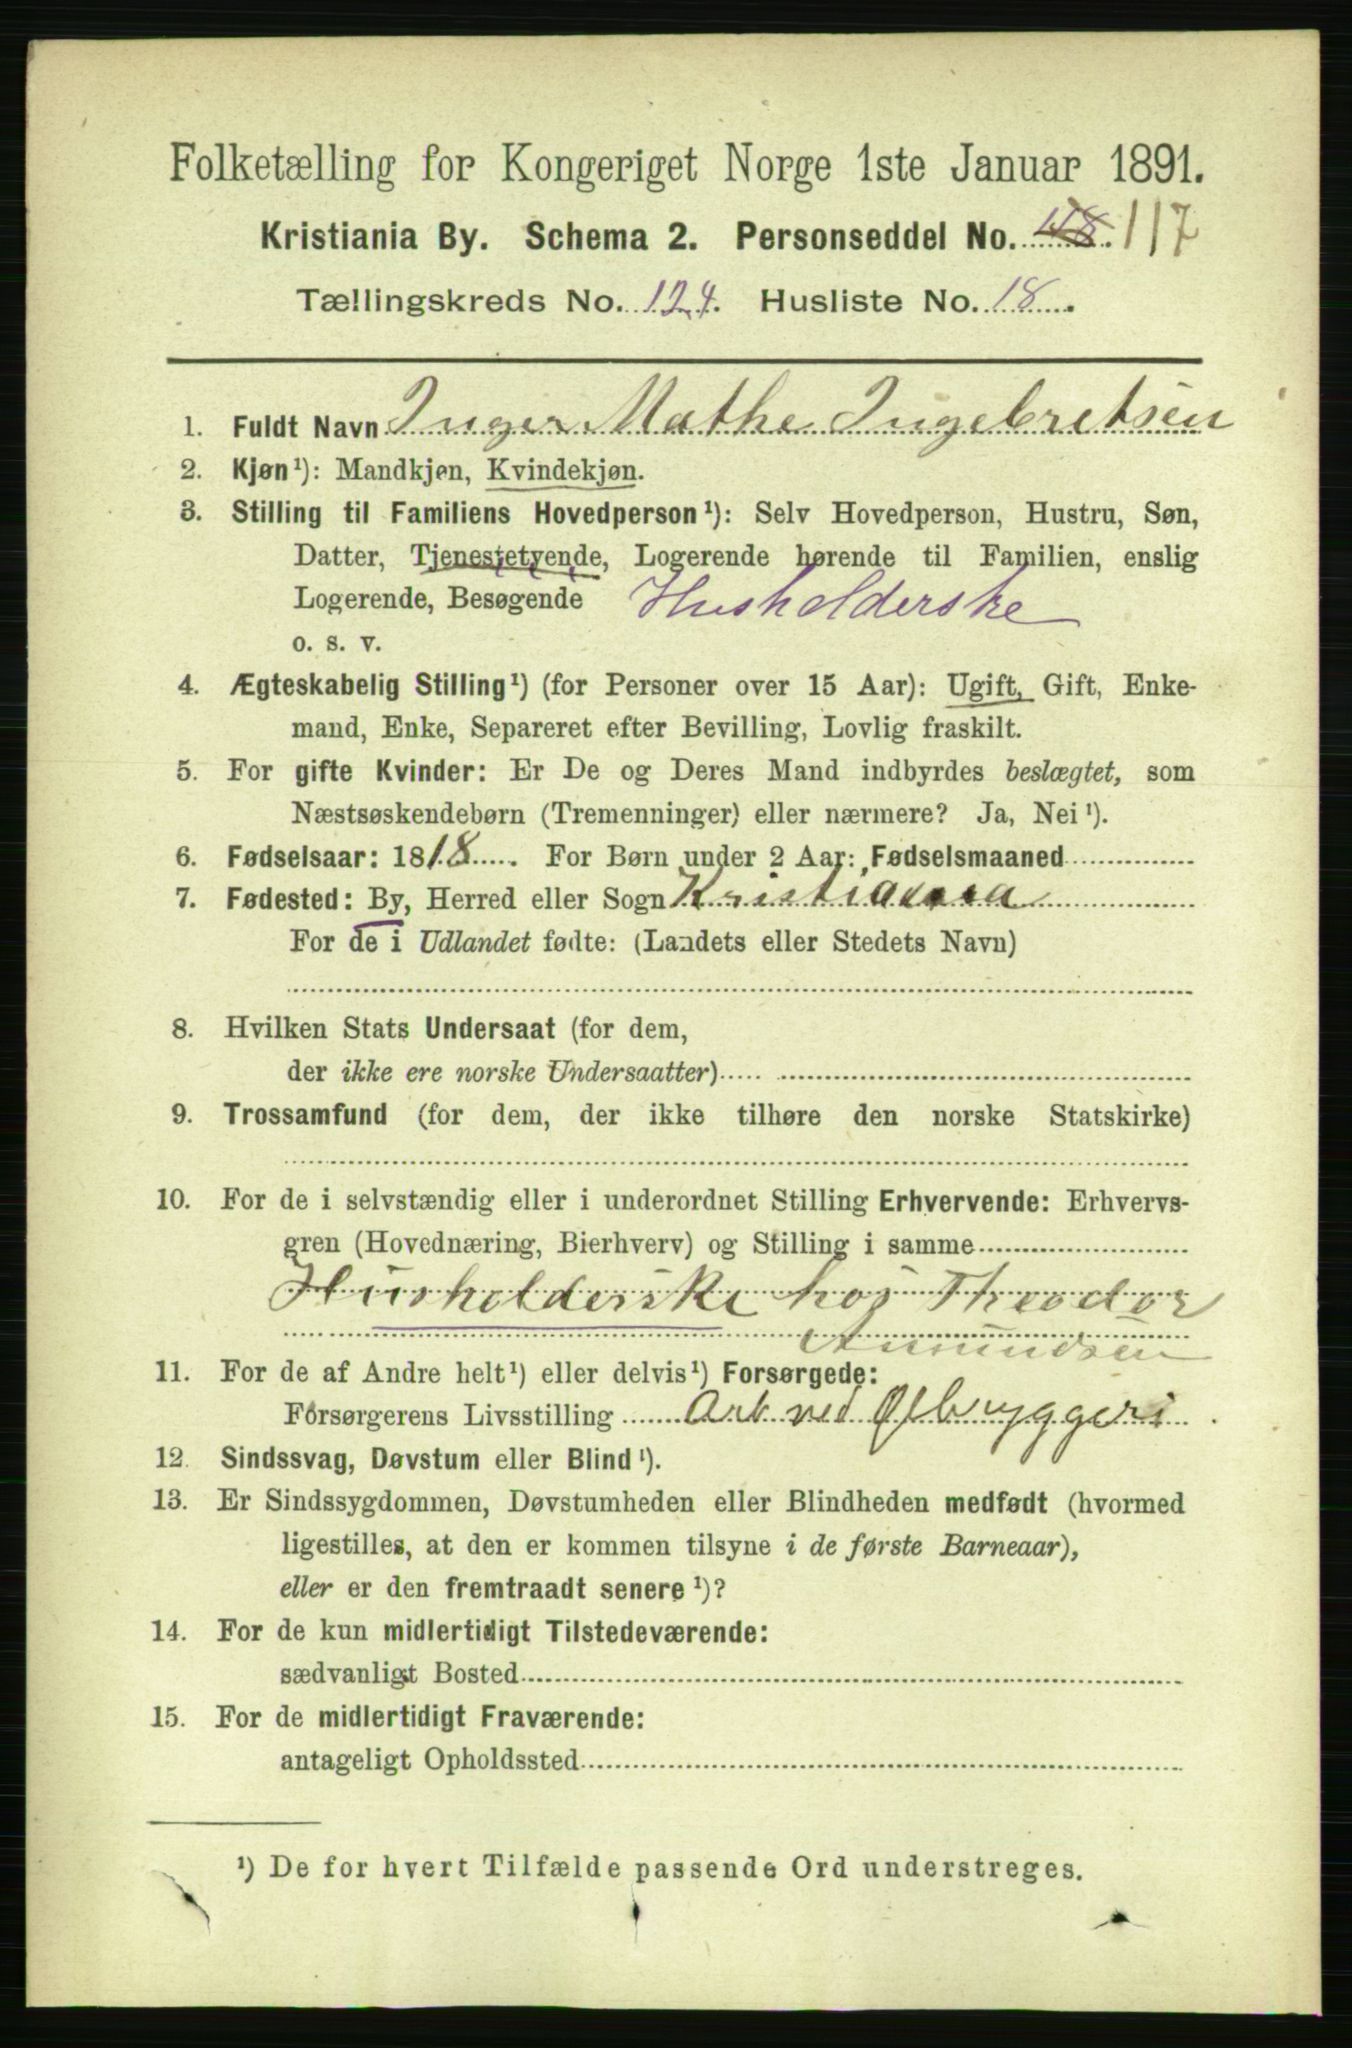 Folketælling for Kongeriget Norge 1ste Januar 1891.
Kristiania By. Schema 2. Personseddel No. 118. 117
Tællingskreds No. 124. Husliste No. 18.
1. Fuldt Navn Inger Mathe Ingebretsen
2. Kjøn¹): Mandkjøn, Kvindekjøn.
3. Stilling til Familiens Hovedperson¹): Selv Hovedperson, Hustru, Søn,
Datter, Tjenestetyende, Logerende hørende til Familien, enslig
Logerende, Besøgende Husholderske
o. s. v.
4. Ægteskabelig Stilling¹) (for Personer over 15 Aar): Ugift, Gift, Enke-
mand, Enke, Separeret efter Bevilling, Lovlig fraskilt.
5. For gifte Kvinder: Er De og Deres Mand indbyrdes beslægtet, som
Næstsøskendebørn (Tremenninger) eller nærmere? Ja, Nei¹).
6. Fødselsaar: 1818. For Børn under 2 Aar: Fødselsmaaned
7. Fødested: By, Herred eller Sogn Kristiania
For de i Udlandet fødte: (Landets eller Stedets Navn)
8. Hvilken Stats Undersaat (for dem,
der ikke ere norske Undersaatter)
9. Trossamfund (for dem, der ikke tilhøre den norske Statskirke)
10. For de i selvstændig eller i underordnet Stilling Erhvervende: Erhvervs-
gren (Hovednæring, Bierhverv) og Stilling i samme
Husholderske hos Theodor
Amundsen
11. For de af Andre helt¹) eller delvis¹) Forsørgede:
Forsørgerens Livsstilling Arb ved Ølbryggeri.
12. Sindssvag, Døvstum eller Blind¹).
13. Er Sindssygdommen, Døvstumheden eller Blindheden medfødt (hvormed
ligestilles, at den er kommen tilsyne i de første Barneaar),
eller er den fremtraadt senere¹)?
14. For de kun midlertidigt Tilstedeværende:
sædvanligt Bosted
15. For de midlertidigt Fraværende:
antageligt Opholdssted
¹) De for hvert Tilfælde passende Ord understreges.